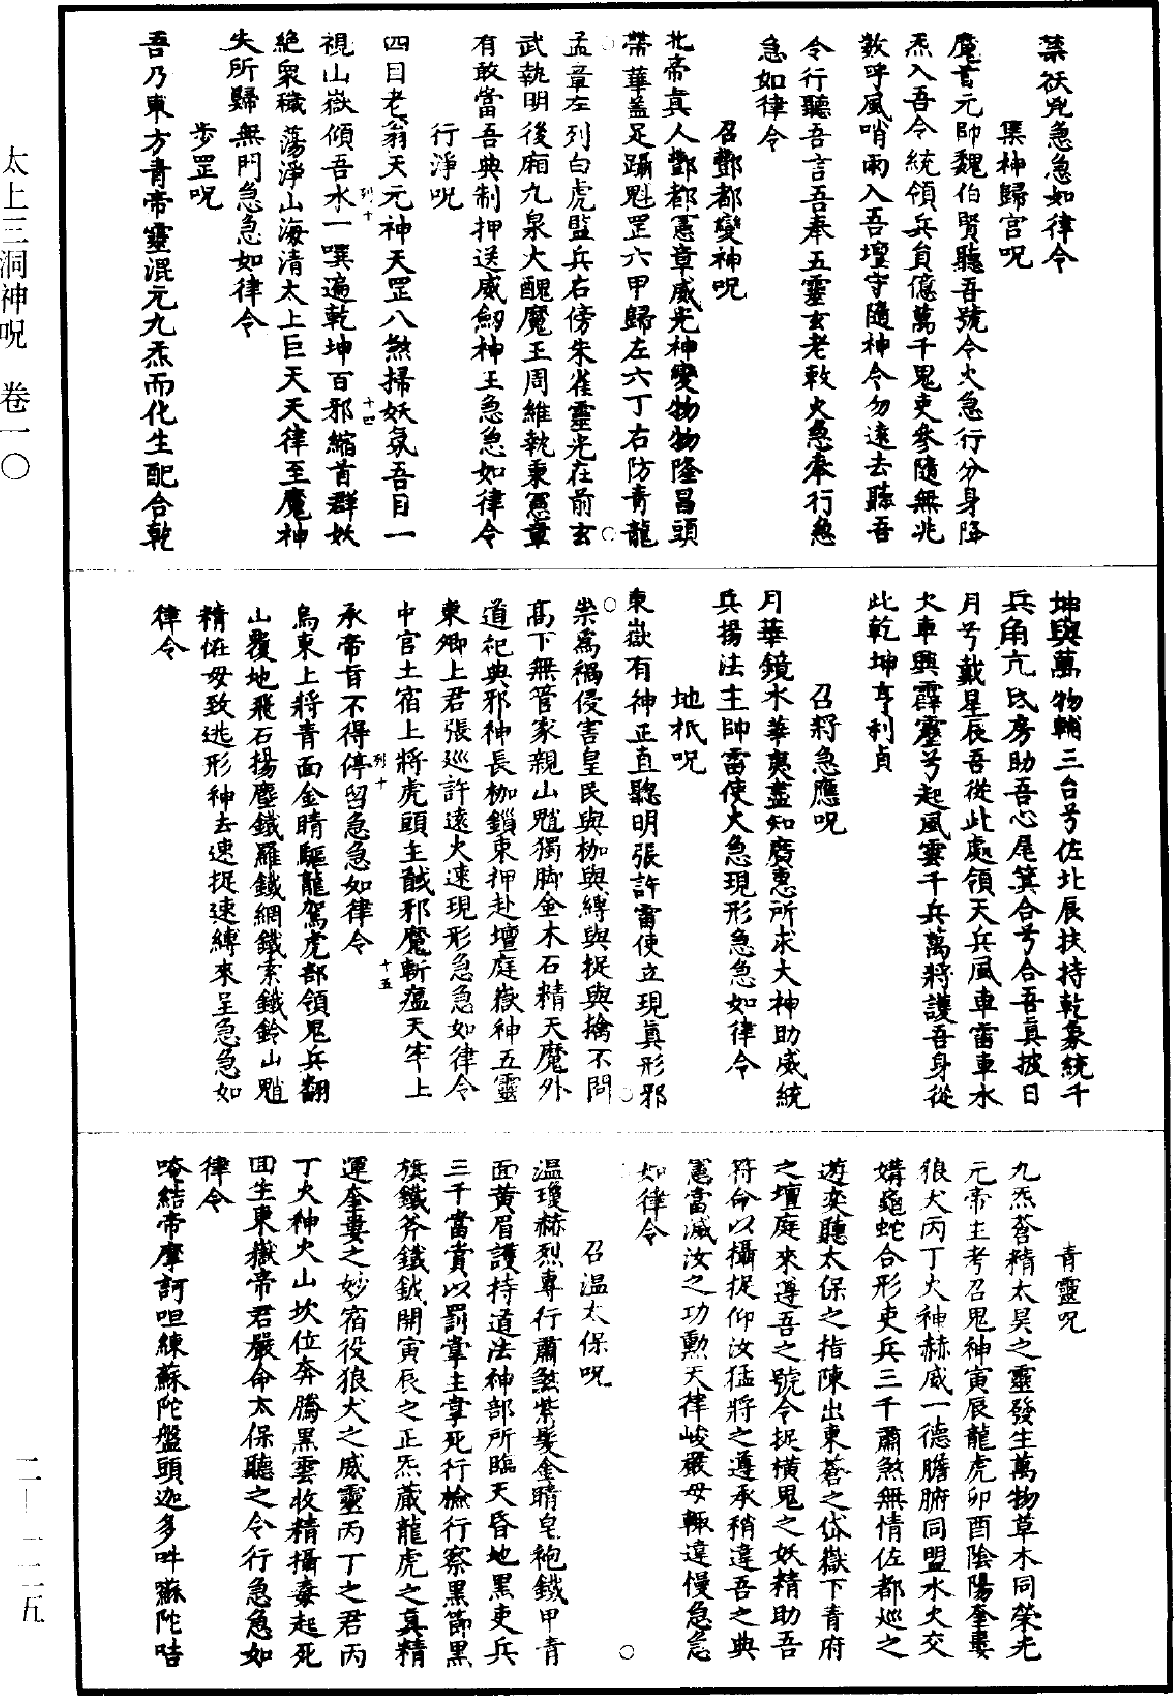 禁祅兇急急如律令
集神歸宮呪
魔言元帥魏伯賢聽吾號令火急行分身降
炁入吾令統領兵負億萬千鬼吏參隨無兆
數呼風哨雨入吾壇守隨神令勿遠去聽吾
令行聽吾言吾奉五靈玄老敕火急奉行急
急如律令
召酆都變神呪
北帝真人酆都憲章威光神變物物隆昌頭
帶華蓋足躡魁罡六甲歸左六丁右防青龍
孟章左列白虎監兵右傍朱雀靈光在前玄
武執明後廂九泉大醜魔王周維執秉憲章
有敢當吾典制押送威劒神王急急如律令
行淨呪
四目老翁天元神天罡八煞掃妖氛吾目一
視山嶽傾吾水一噀遍乾坤百邪縮首群妖
絕衆穢蕩淨山海清太上巨天天律至魔神
失所歸無門急急如律令
步罡呪
吾乃東方青帝靈混元九炁而化生配合乾
列十
十四
坤與萬物輔三台兮佐北辰扶持乾象統千
兵角亢氐房助吾心尾箕合兮合吾真披日
月兮戴星辰吾從此處領天兵風車雷車水
火車興霹靂兮起風雲千兵萬將護吾身從
此乾坤亨利貞
召將急應呪
月華鏡水華夷盡知廣惠所求大神助威統
兵揚法主帥雷使火急現形急急如律令
地祇呪
東嶽有神正直聰明張許雷使立現真形邪
祟爲禍侵害皇民與枷與縛與捉與擒不問
高下無管家親山魈獨脚金木石精天魔外
道祀典邪神長枷鎖束押赴壇庭嶽神五靈
東卿上君張巡許遠火速現形急急如律令
中官土宿上將虎頭主馘邪魔斬瘟天牢上
承帝旨不得停留急急如律令
烏東上將青面金睛驅龍駕虎部領鬼兵翻
山覆地飛石揚塵鐵羅鐵網鐵索鐵鈴山魈
精怪毋致逃形神去速捉速縛來呈急急如
律令
列十
十五
青靈呪
九炁蒼精太昊之靈發生萬物草木同榮光
元帝主考召鬼神寅辰龍虎卯酉陰陽奎婁
狼犬丙丁火神赫威一德膽腑同盟水火交
媾龜蛇合形吏兵三千肅煞無情佐都巡之
遊奕聽太保之指陳出東蒼之岱嶽下青府
之壇庭來遵吾之號令捉橫鬼之妖精助吾
符命以攝捉仰汝猛將之遵承稍違吾之典
憲當滅汝之功勳天律峻嚴毋輒違慢急急
如律令
召溫太保呪
溫瓊赫烈專行肅煞紫髮金睛皂袍鐵甲青
面黃眉護持道法神部所臨天昏地黑吏兵
三千當賞以罰掌主掌死行檢行察黑節黑
旗鐵斧鐵鉞開寅辰之正炁蔵龍虎之真精
運奎婁之妙宿役狼犬之威靈丙丁之君丙
丁火神火山坎位奔騰黑雲收精攝毒起死
回生東嶽帝君嚴命太保聽之令行急急如
律令
唵結帝摩訶呾練蘇陀盤頭迦多吽蘇陀咭
太上三洞神呪 卷一〇
二—一二五